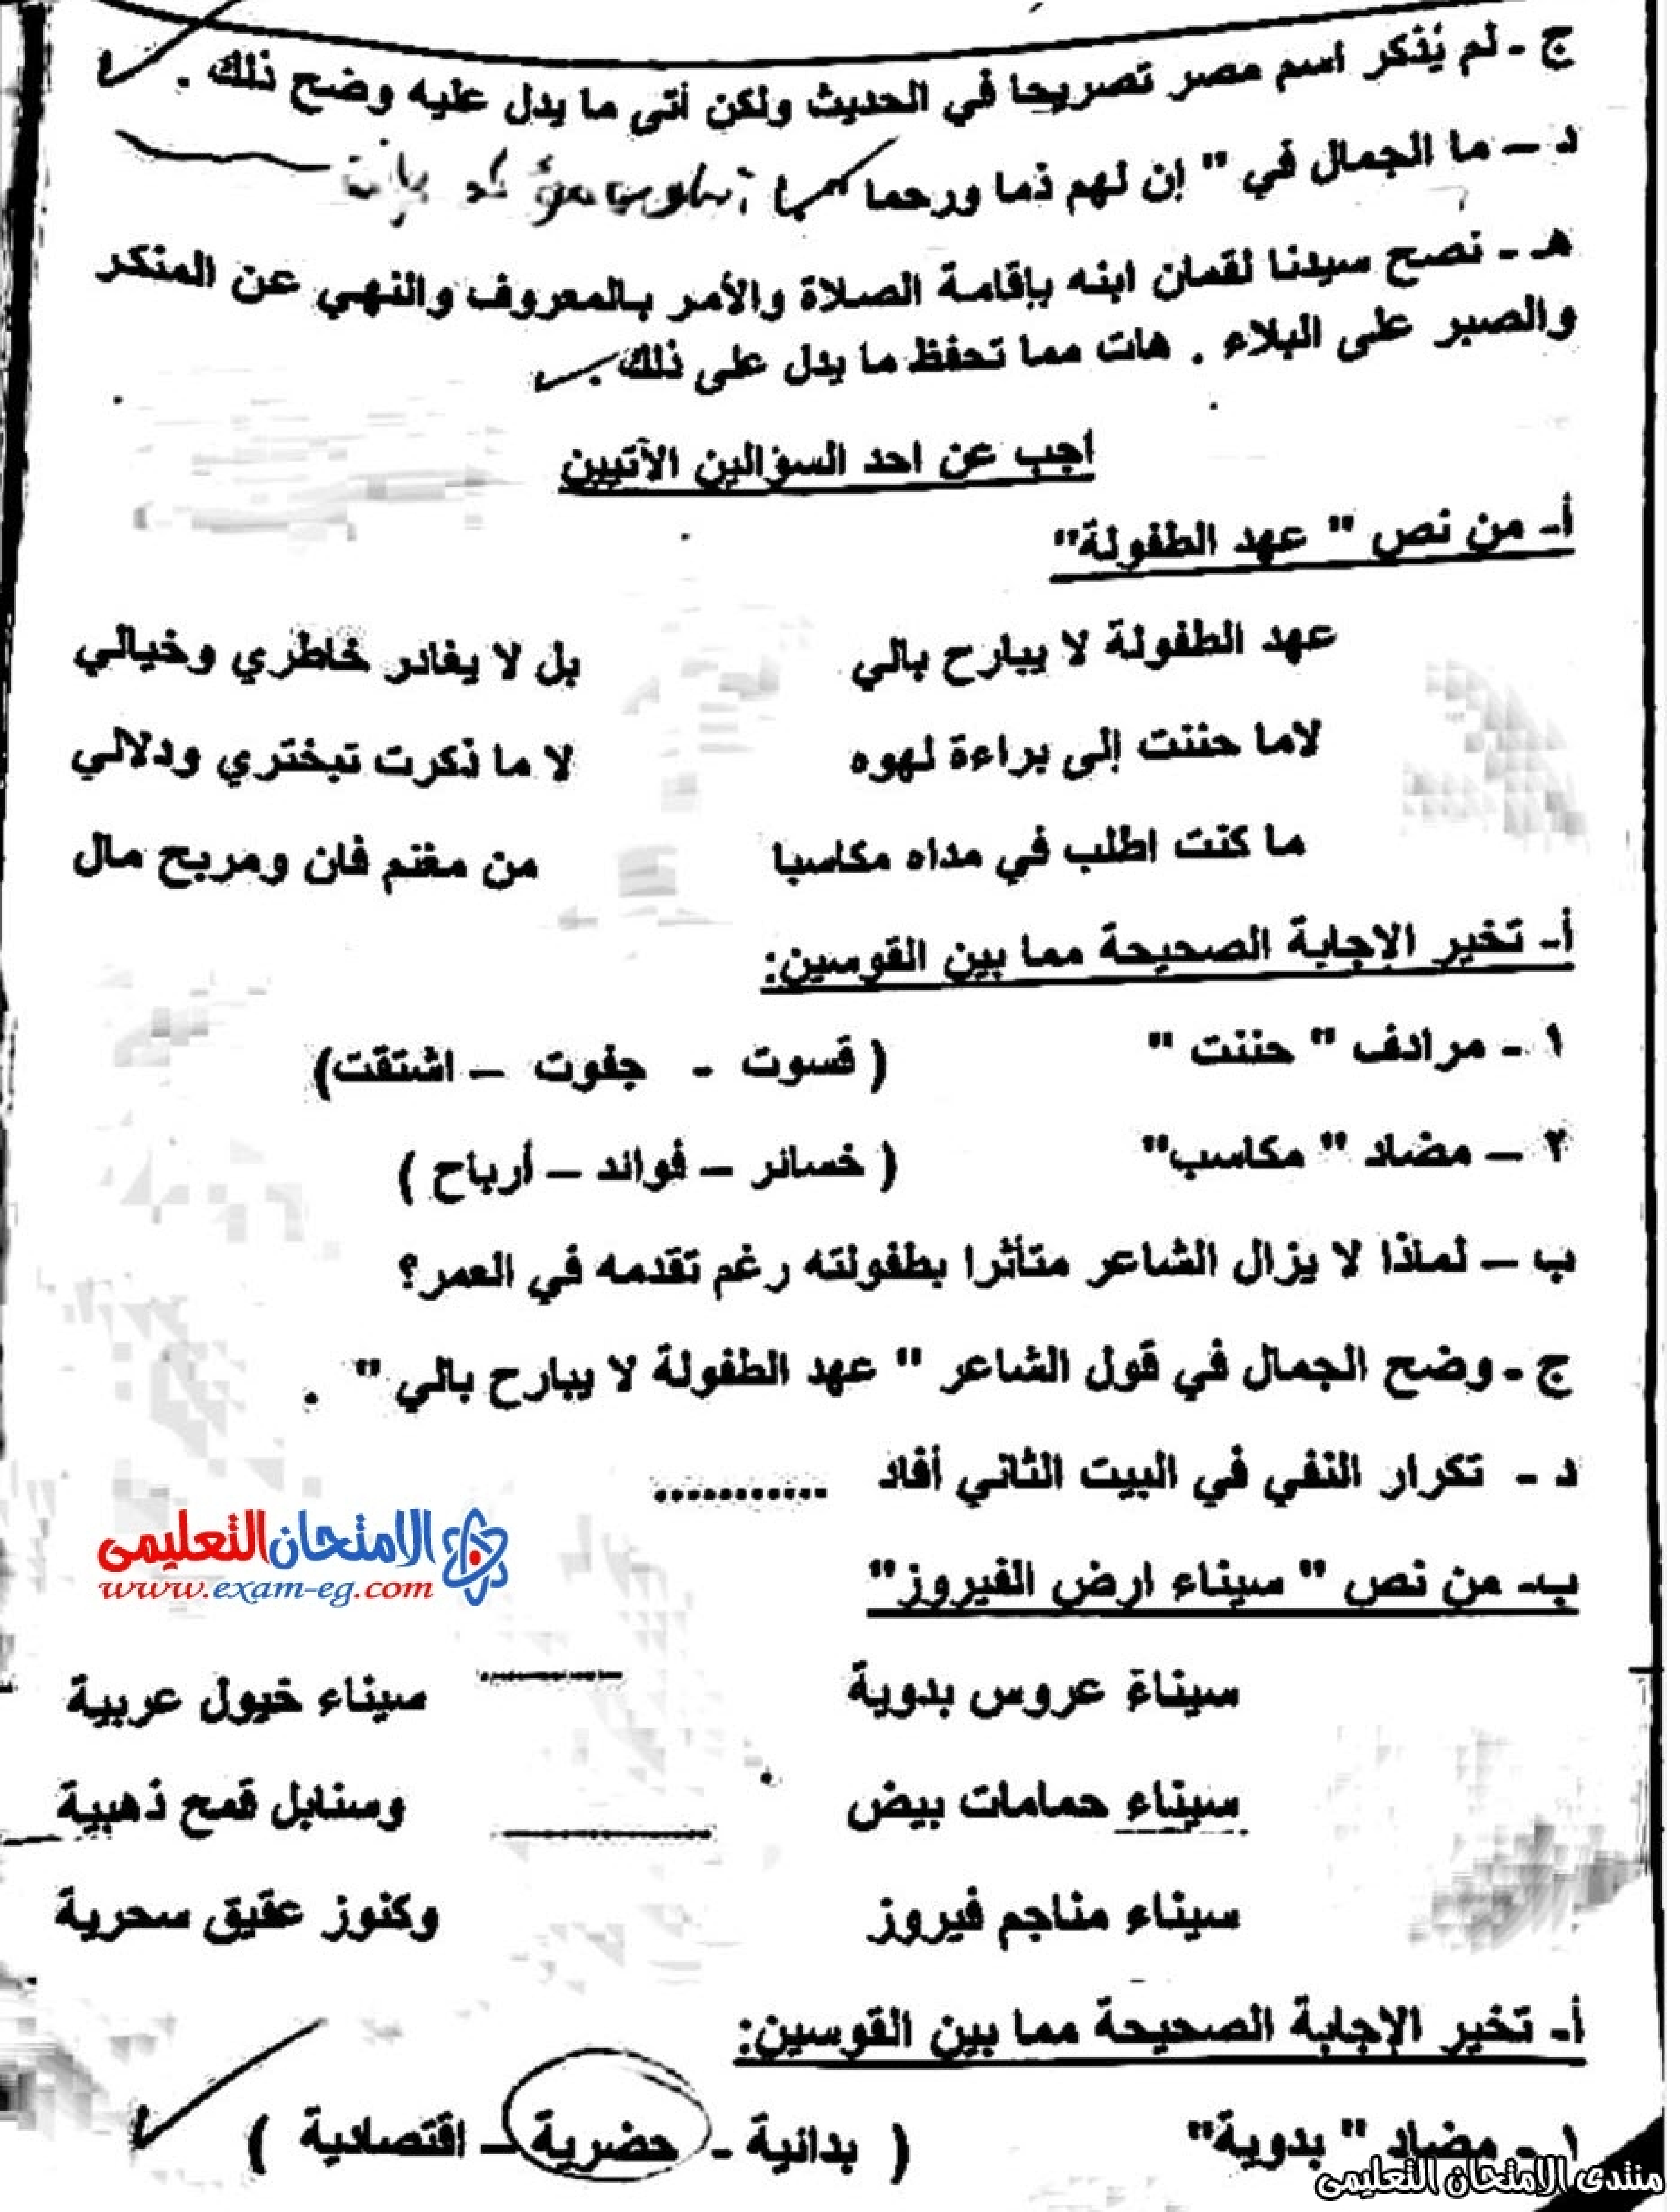 ج - لم يُذكر اسم مصر تصريحا في الحديث ولكن أتى ما يدل عليه وضح ذلك .
د – ما الجمال في " إن لهم ذما ورحما "
هـ - نصح سيدنا لقمان ابنه بإقامة الصلاة والأمر بالمعروف والنهي عن المنكر
والصبر على البلاء . هات مما تحفظ ما يدل على ذلك .
اجب عن احد السؤالين الآتيين
أ- من نص " عهد الطفولة"
عهد الطفولة لا يبارح بالي بل لا يغادر خاطري وخيالي
لاما حننت إلى براءة لهوه لا ما ذكرت تبختري ودلالي
ما كنت اطلب في مداه مكاسبا من مغنم فان ومربح مال
أ- تخير الإجابة الصحيحة مما بين القوسين:
١ - مرادف " حننت " ( قسوت - جفوت – اشتقت)
٢ – مضاد " مكاسب" ( خسائر – فوائد – أرباح )
ب – لماذا لا يزال الشاعر متأثرا بطفولته رغم تقدمه في العمر؟
ج - وضح الجمال في قول الشاعر " عهد الطفولة لا يبارح بالي " .
د - تكرار النفي في البيت الثاني أفاد ...........
الامتحان التعليمى
www.exam-eg.com
ب- من نص " سيناء ارض الفيروز"
سيناء عروس بدوية سيناء خيول عربية
سيناء حمامات بيض وسنابل قمح ذهبية
سيناء مناجم فيروز وكنوز عقيق سحرية
أ- تخير الإجابة الصحيحة مما بين القوسين:
١ - مضاد " بدوية" ( بدائية - حضرية – اقتصادية )
منتدى الامتحان التعليمى